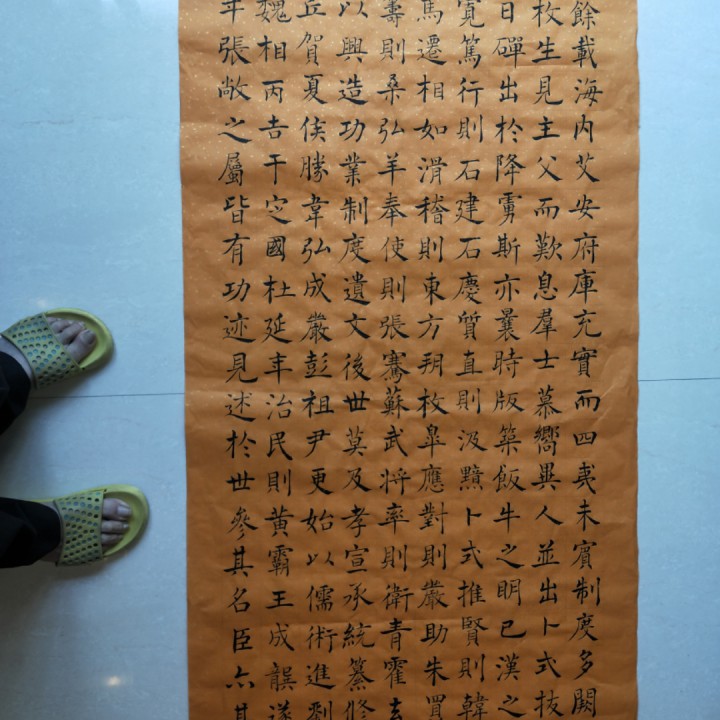 餘載海内艾安府庫充實而四夷未賓制度多闕
枚生見主父而歎息羣士慕嚮異人並出卜式技
日磾出於降虜斯亦曩時版築飯牛之朙已漢之
寬篤行則石建石慶質直則汲黯卜式推賢則韓
馬遷相如滑稽則東方朔枚皐應對則嚴助朱買
壽則桑弘羊奉使則張騫蘇武將率則衛青霍去
以興造功業制度遺文後世莫及孝宣承統纂修
丘賀夏侯勝韋弘成嚴彭祖尹更始以儒術進劉
魏相丙吉于定國杜延年治民則黄霸王成龔遂
年張敞之屬皆有功迹見述於世參其名臣亦其